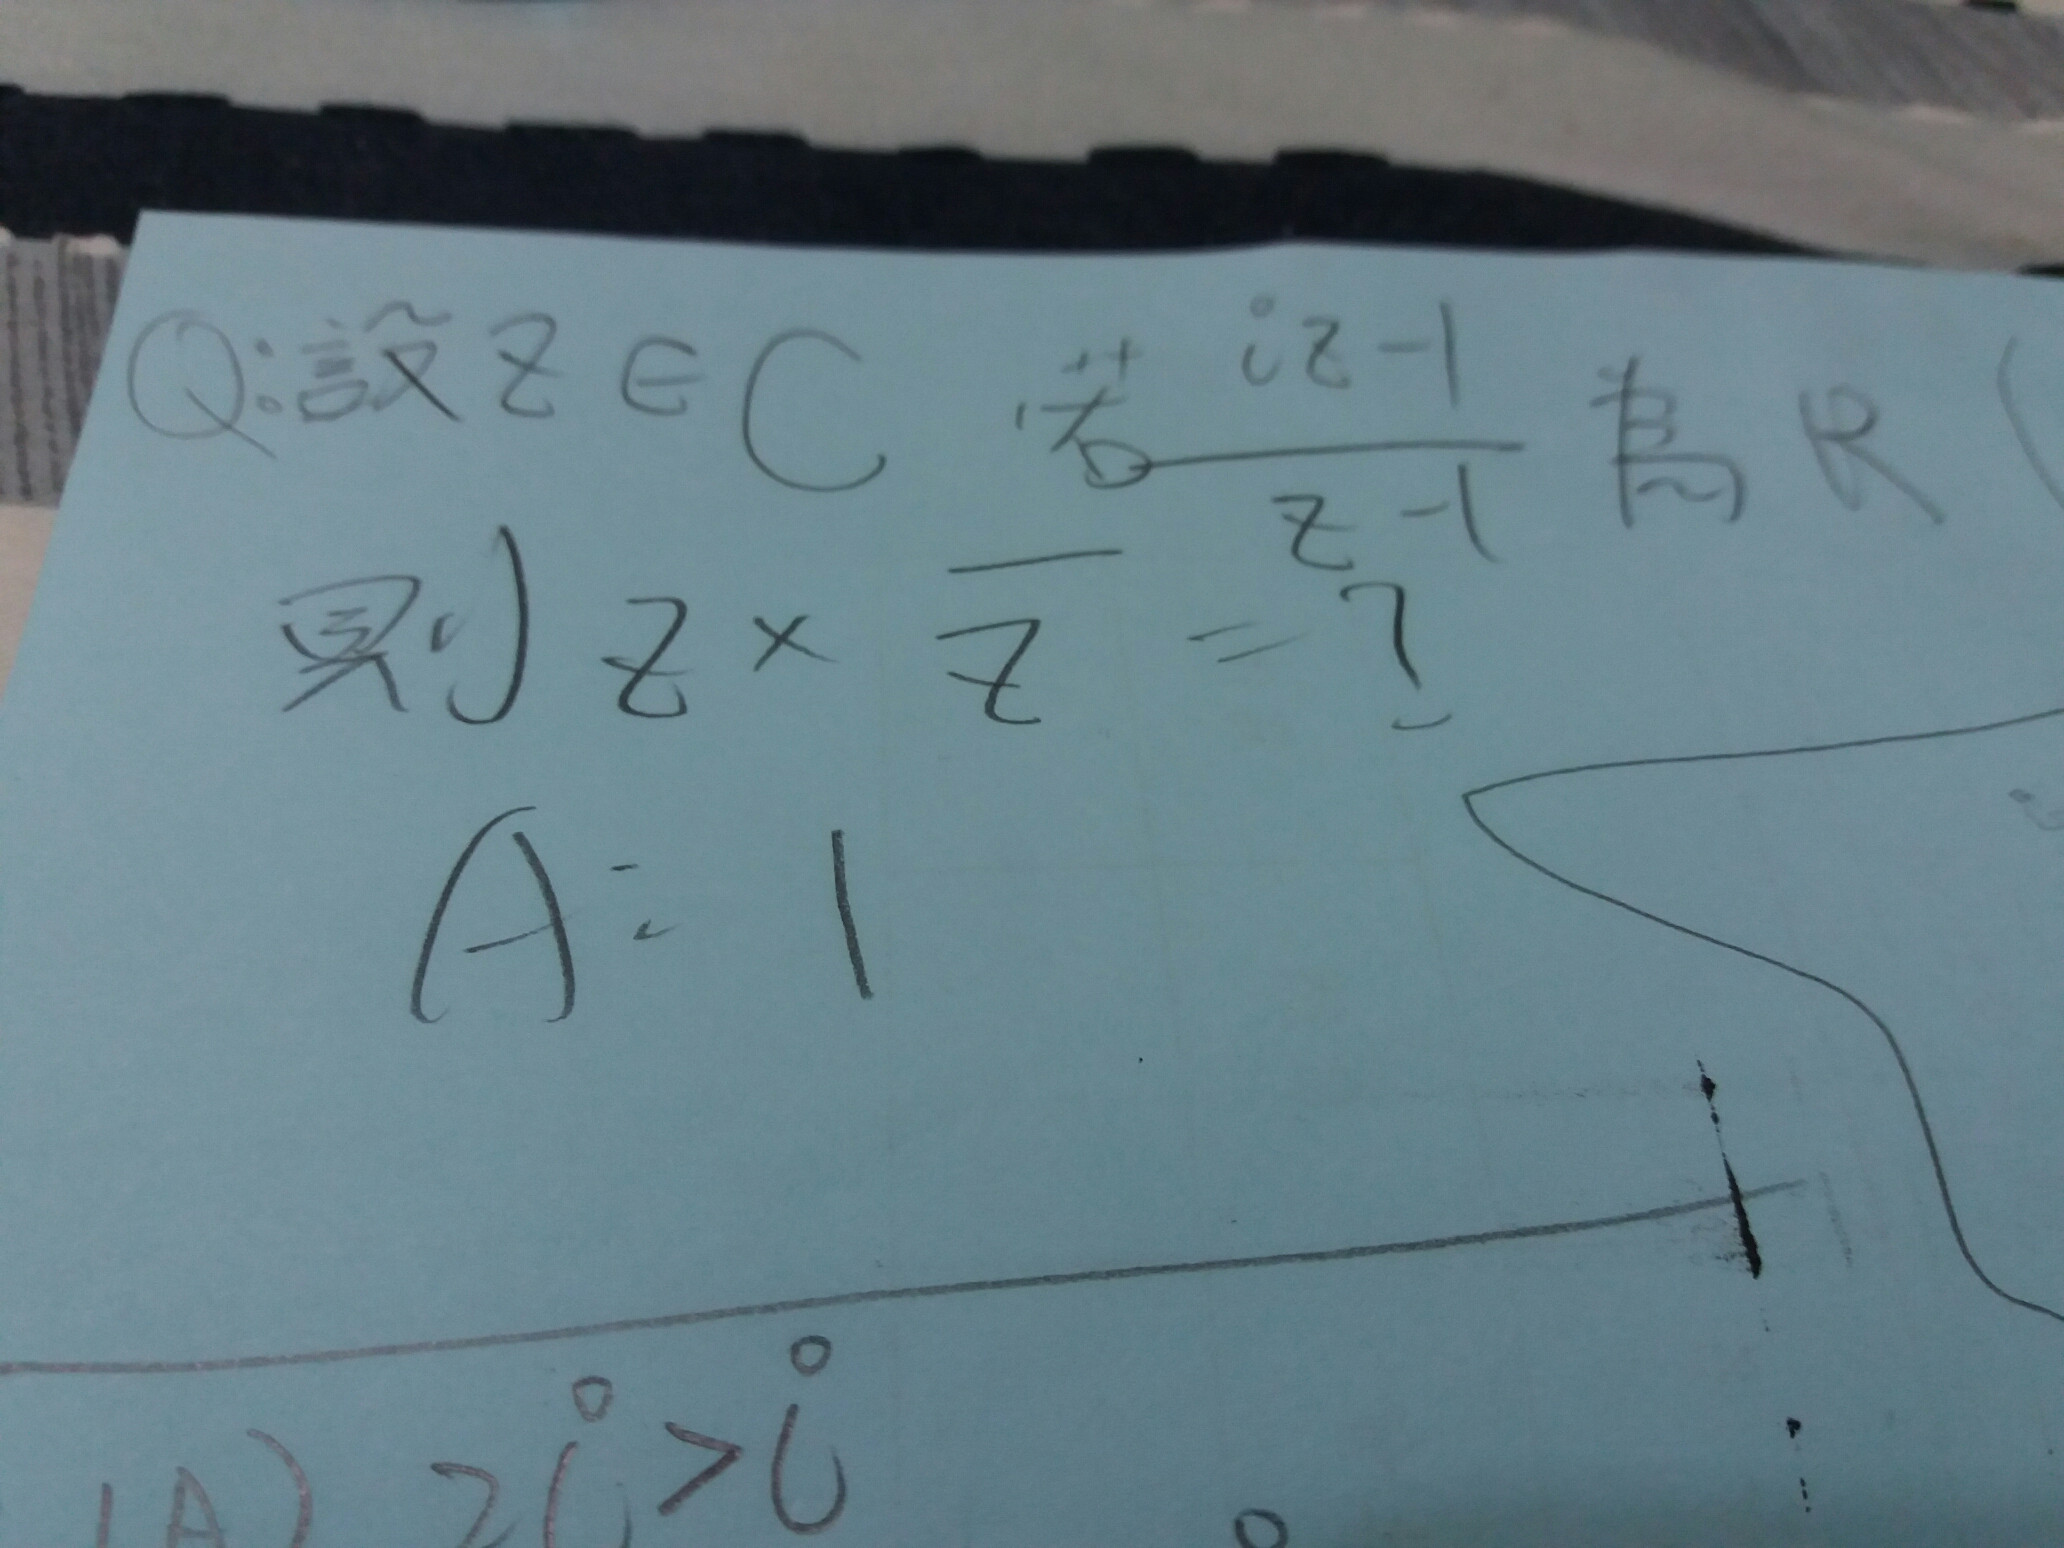 Q:設Z∈C 若 iz-1 / z-1 為R (
則 Z × Z̅ = ?
A: 1
(A) 2i>i